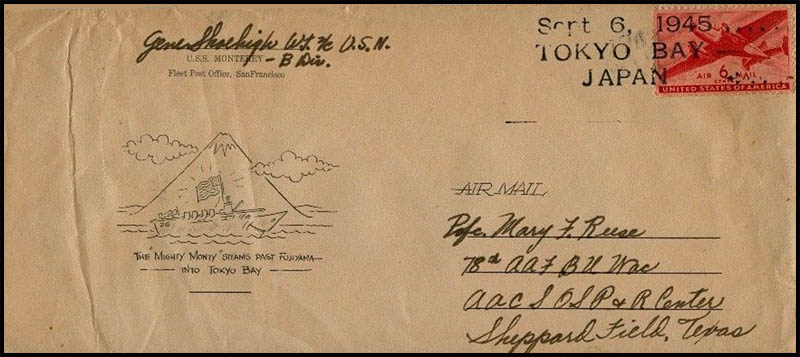 Gene Shoehigh WT 3/c U.S.N.
U.S.S. MONTEREY – B Div.
Fleet Post Office, SanFrancisco
Sept 6, 1945
TOKYO BAY
JAPAN
AIR 6 MAIL
CENTS
UNITED STATES OF AMERICA
26
THE "MIGHTY MONTY" STEAMS PAST FUJIYAMA
INTO TOKYO BAY
AIR MAIL
Pfc. Mary F. Reese
78th AAF BU Wac
AACS OSP & R Center
Sheppard Field, Texas